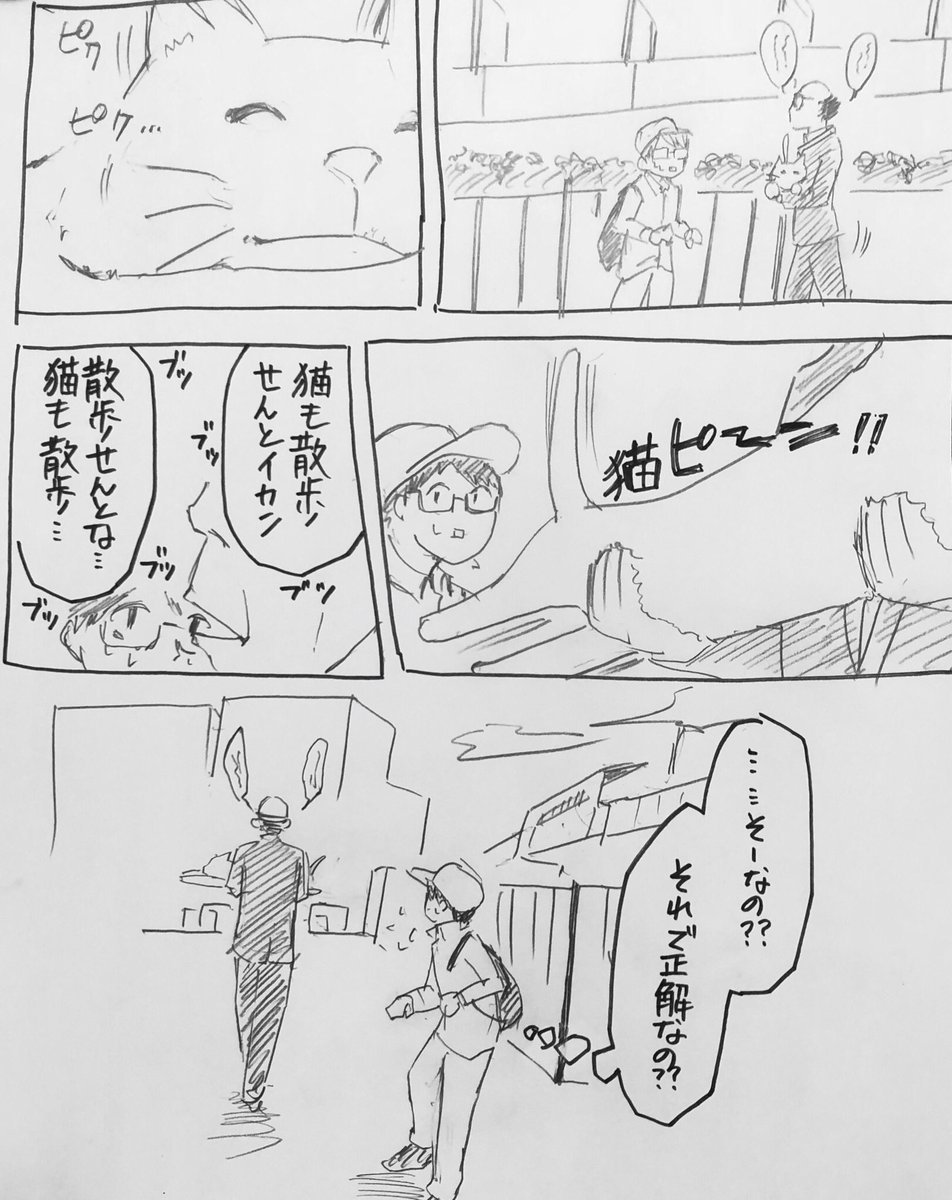 ピク
ピク…
猫ピーーン!!
猫も散歩
せんとイカン
ブツ
ブツ
ブツ
散歩せんとな…
猫も散歩…
ブツ
ブツ
……そーなの??
それで正解なの??